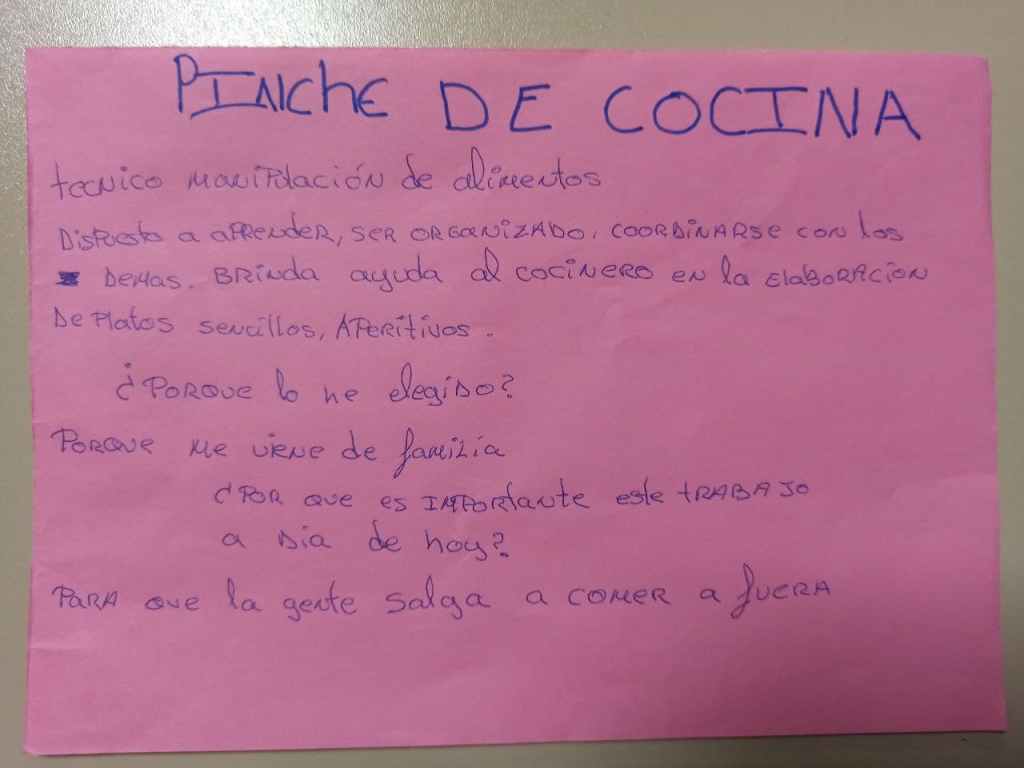 PINChE DE COCINA
tecnico manipulación de alimentos
Dispuesto a aprender, ser organizado, coordinarse con los
demas. Brinda ayuda al cocinero en la elaboracion
De platos sencillos, aperitivos.
¿Porque lo he elegido?
Porque me viene de familia
¿Por que es importante este trabajo
a dia de hoy?
Para que la gente salga a comer a fuera